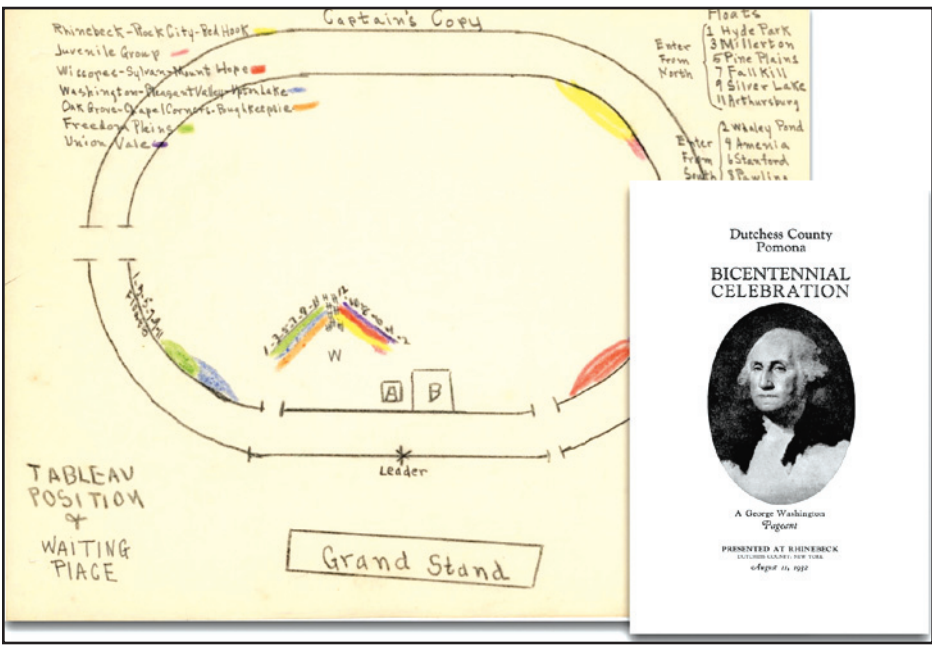 Captain's Copy
Rhinebeck-Rock City-Red Hook
Juvenile Group
Wiccopee-Sylvan-Mount Hope
Washington-Pleasant Valley-Upton Lake
Oak Grove-Chapel Corners-Poughkeepsie
Freedom Plains
Union Vale
Floats
Enter From North
1 Hyde Park
3 Millerton
5 Pine Plains
7 Fall Kill
9 Silver Lake
11 Arthursburg
Enter From South
2 Whaley Pond
9 Amenia
6 Stanford
8 Pawling
1-3-5-7-9-11
12
W
A
B
Leader
TABLEAU
POSITION
&
WAITING
PLACE
Grand Stand
Dutchess County
Pomona
BICENTENNIAL
CELEBRATION
A George Washington
Pageant
PRESENTED AT RHINEBECK
DUTCHESS COUNTY, NEW YORK
August 11, 1932